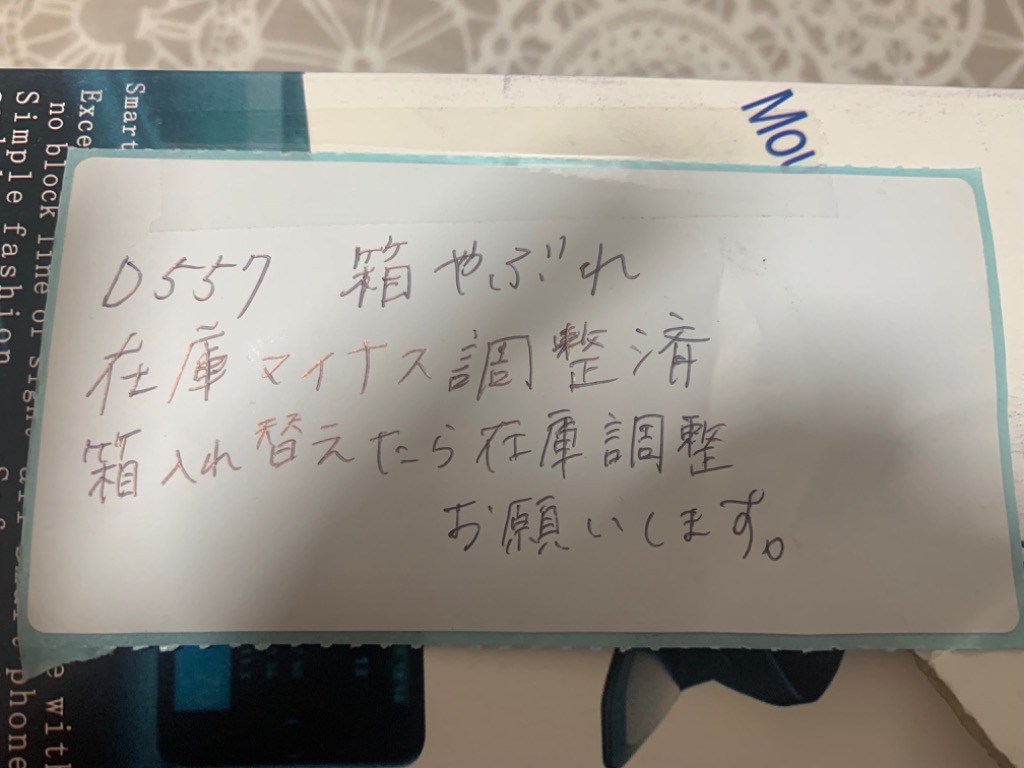 D557 箱やぶれ
在庫マイナス調整済
箱入れ替えたら在庫調整
お願いします。
Mou
Smart
Exce
no block line of sight
Simple fashion
phone
e with